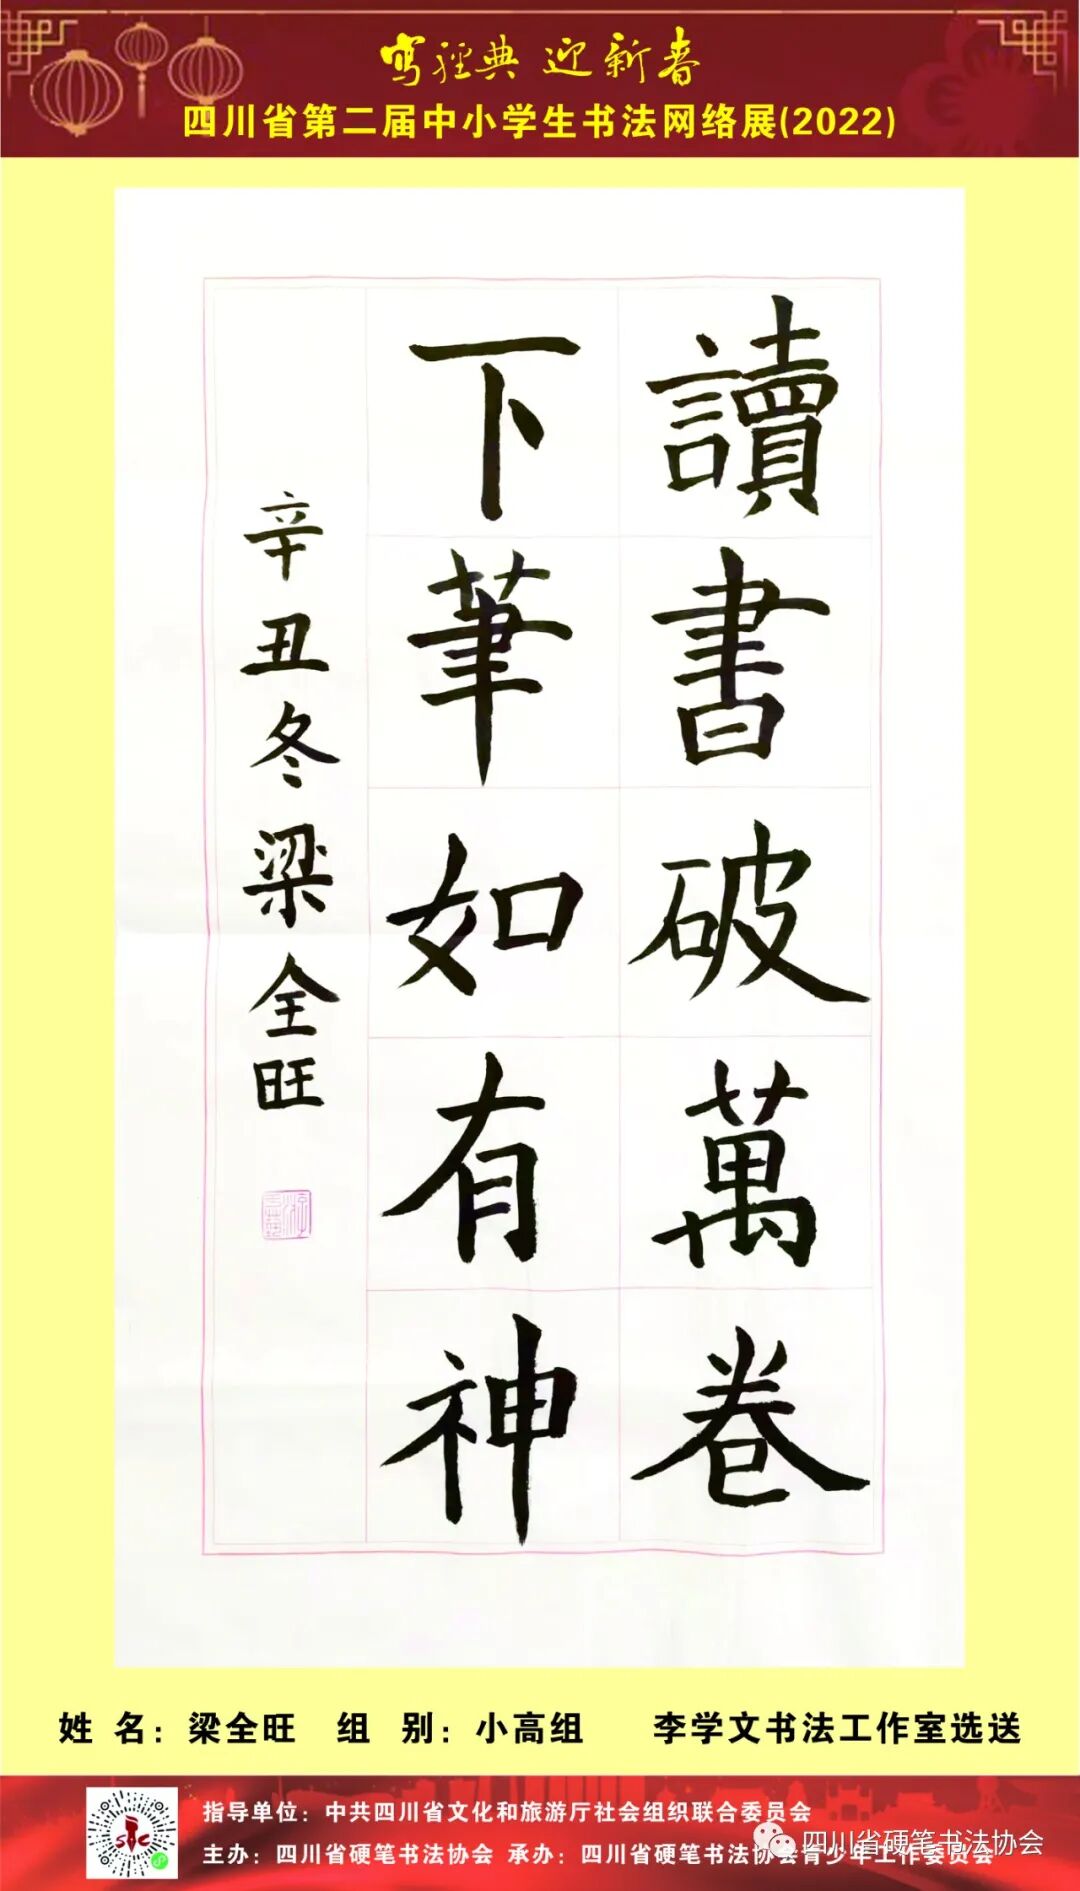 写经典 迎新春
四川省第二届中小学生书法网络展(2022)
讀書破萬卷
下筆如有神
辛丑冬梁全旺
姓 名：梁全旺 组 别：小高组 李学文书法工作室选送
指导单位：中共四川省文化和旅游厅社会组织联合委员会
主办：四川省硬笔书法协会 承办：四川省硬笔书法协会青少年工作委员会
四川省硬笔书法协会